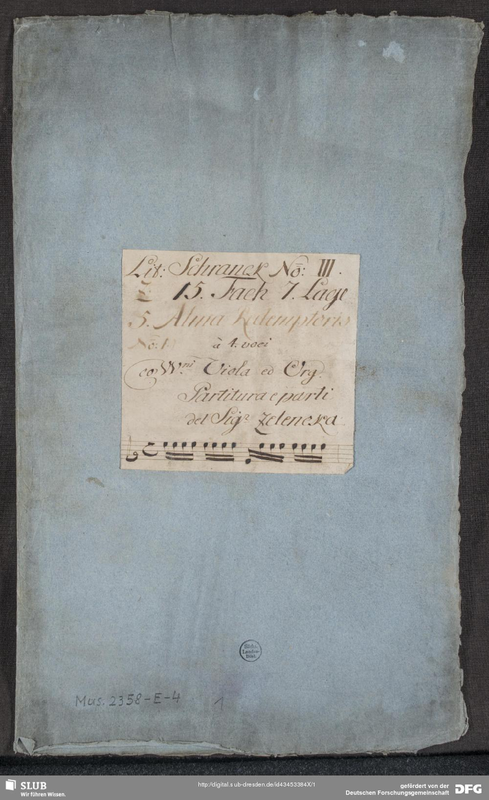 Lit: Schranck No: III.
15. Fach 7. Lage
5. Alma Redemptoris
No: 1 à 4. voci
co VVni Viola ed Org.
Partitura e parti
del Sigr Zelencka
Mus. 2358-E-4 1
SLUB
Wir führen Wissen.
http://digital.slub-dresden.de/id43453384X/1
gefördert von der
Deutschen Forschungsgemeinschaft DFG